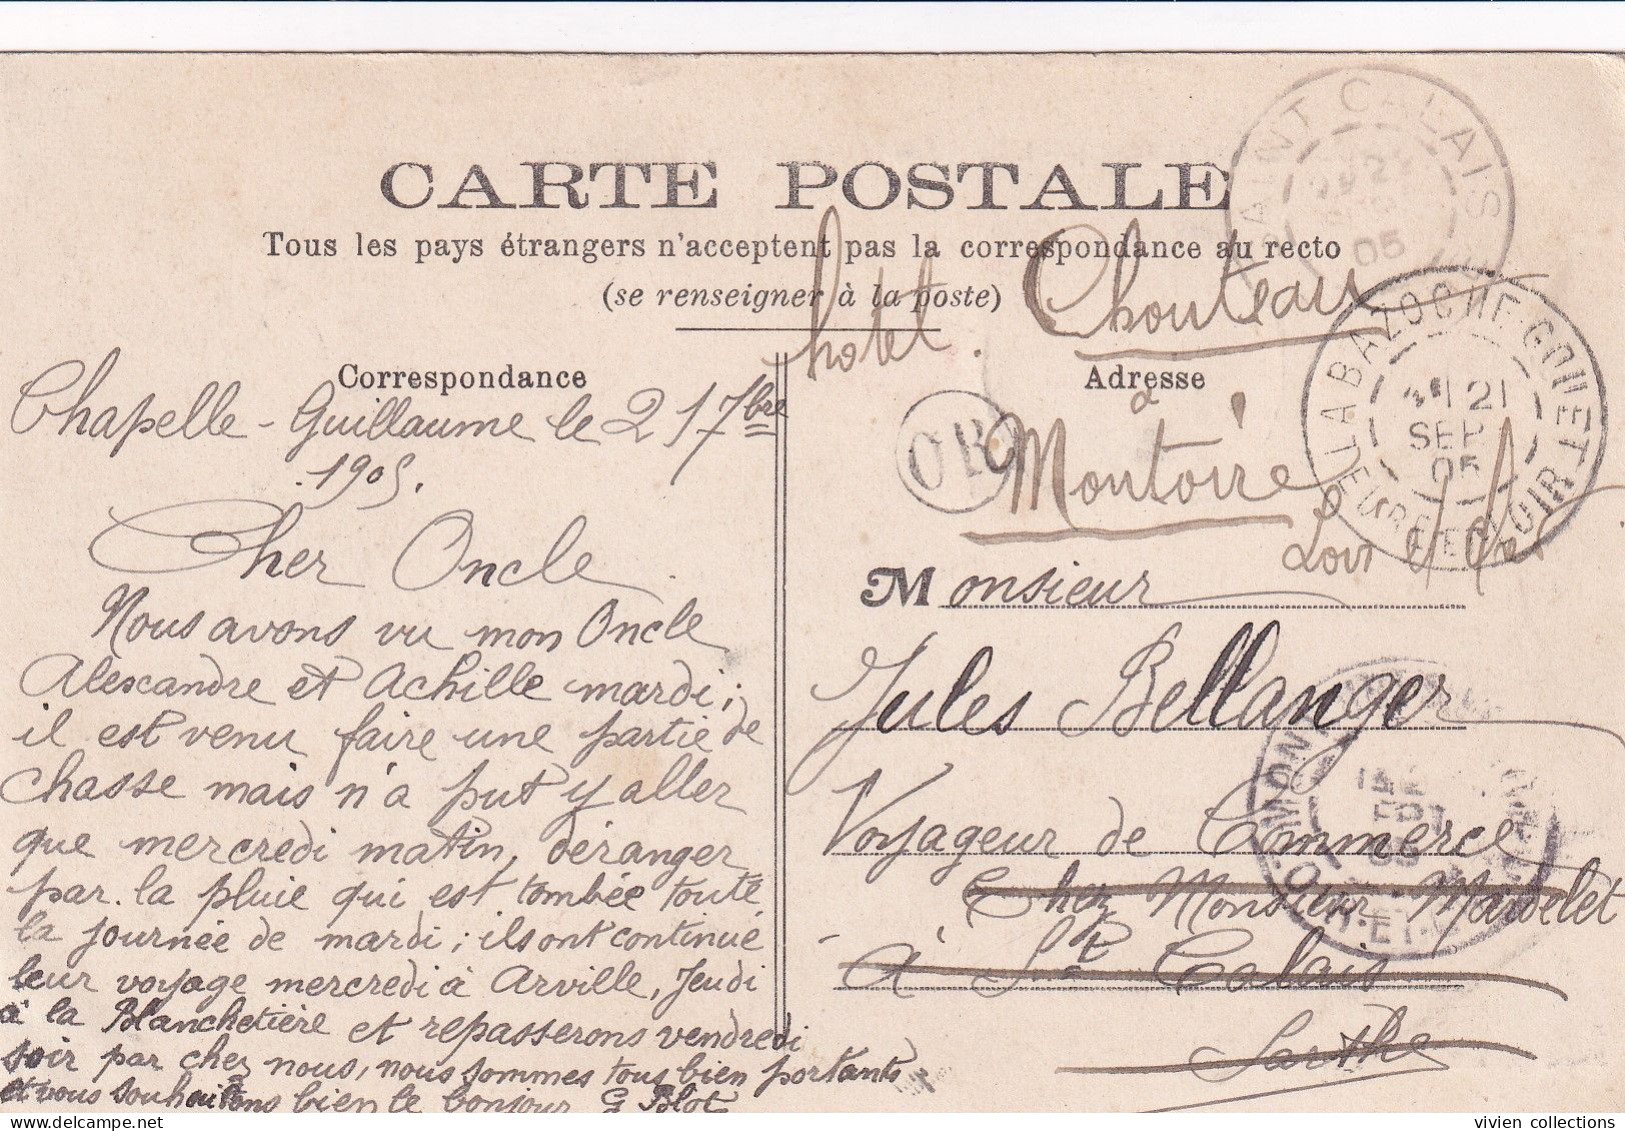 CARTE POSTALE
Tous les pays étrangers n'acceptent pas la correspondance au recto
(se renseigner à la poste)
Correspondance
Chapelle-Guillaume le 21 7bre
1905.
Cher Oncle
Nous avons vu mon Oncle
Alexandre et Achille mardi;
il est venu faire une partie de
chasse mais n'a put y aller
que mercredi matin, déranger
par la pluie qui est tombée toute
la journée de mardi; ils ont continué
leur voyage mercredi à Arville, Jeudi
à la Blanchetière et repasserons vendredi
soir par chez nous, nous sommes tous bien portants
et vous souhaitons bien le bonjour G Blot
hotel Chouteau
Adresse
à
Montoire
Loir et Cher
Monsieur
Jules Bellanger
Voyageur de Commerce
Chez Monsieur Mardelet
à St Calais
Sarthe
OR
SAINT CALAIS
05
LA BAZOCHE-GOUET
21
SEPT
05
EURE-ET-LOIR
MONTOIRE
LOIR-ET-CHER
vivien collections